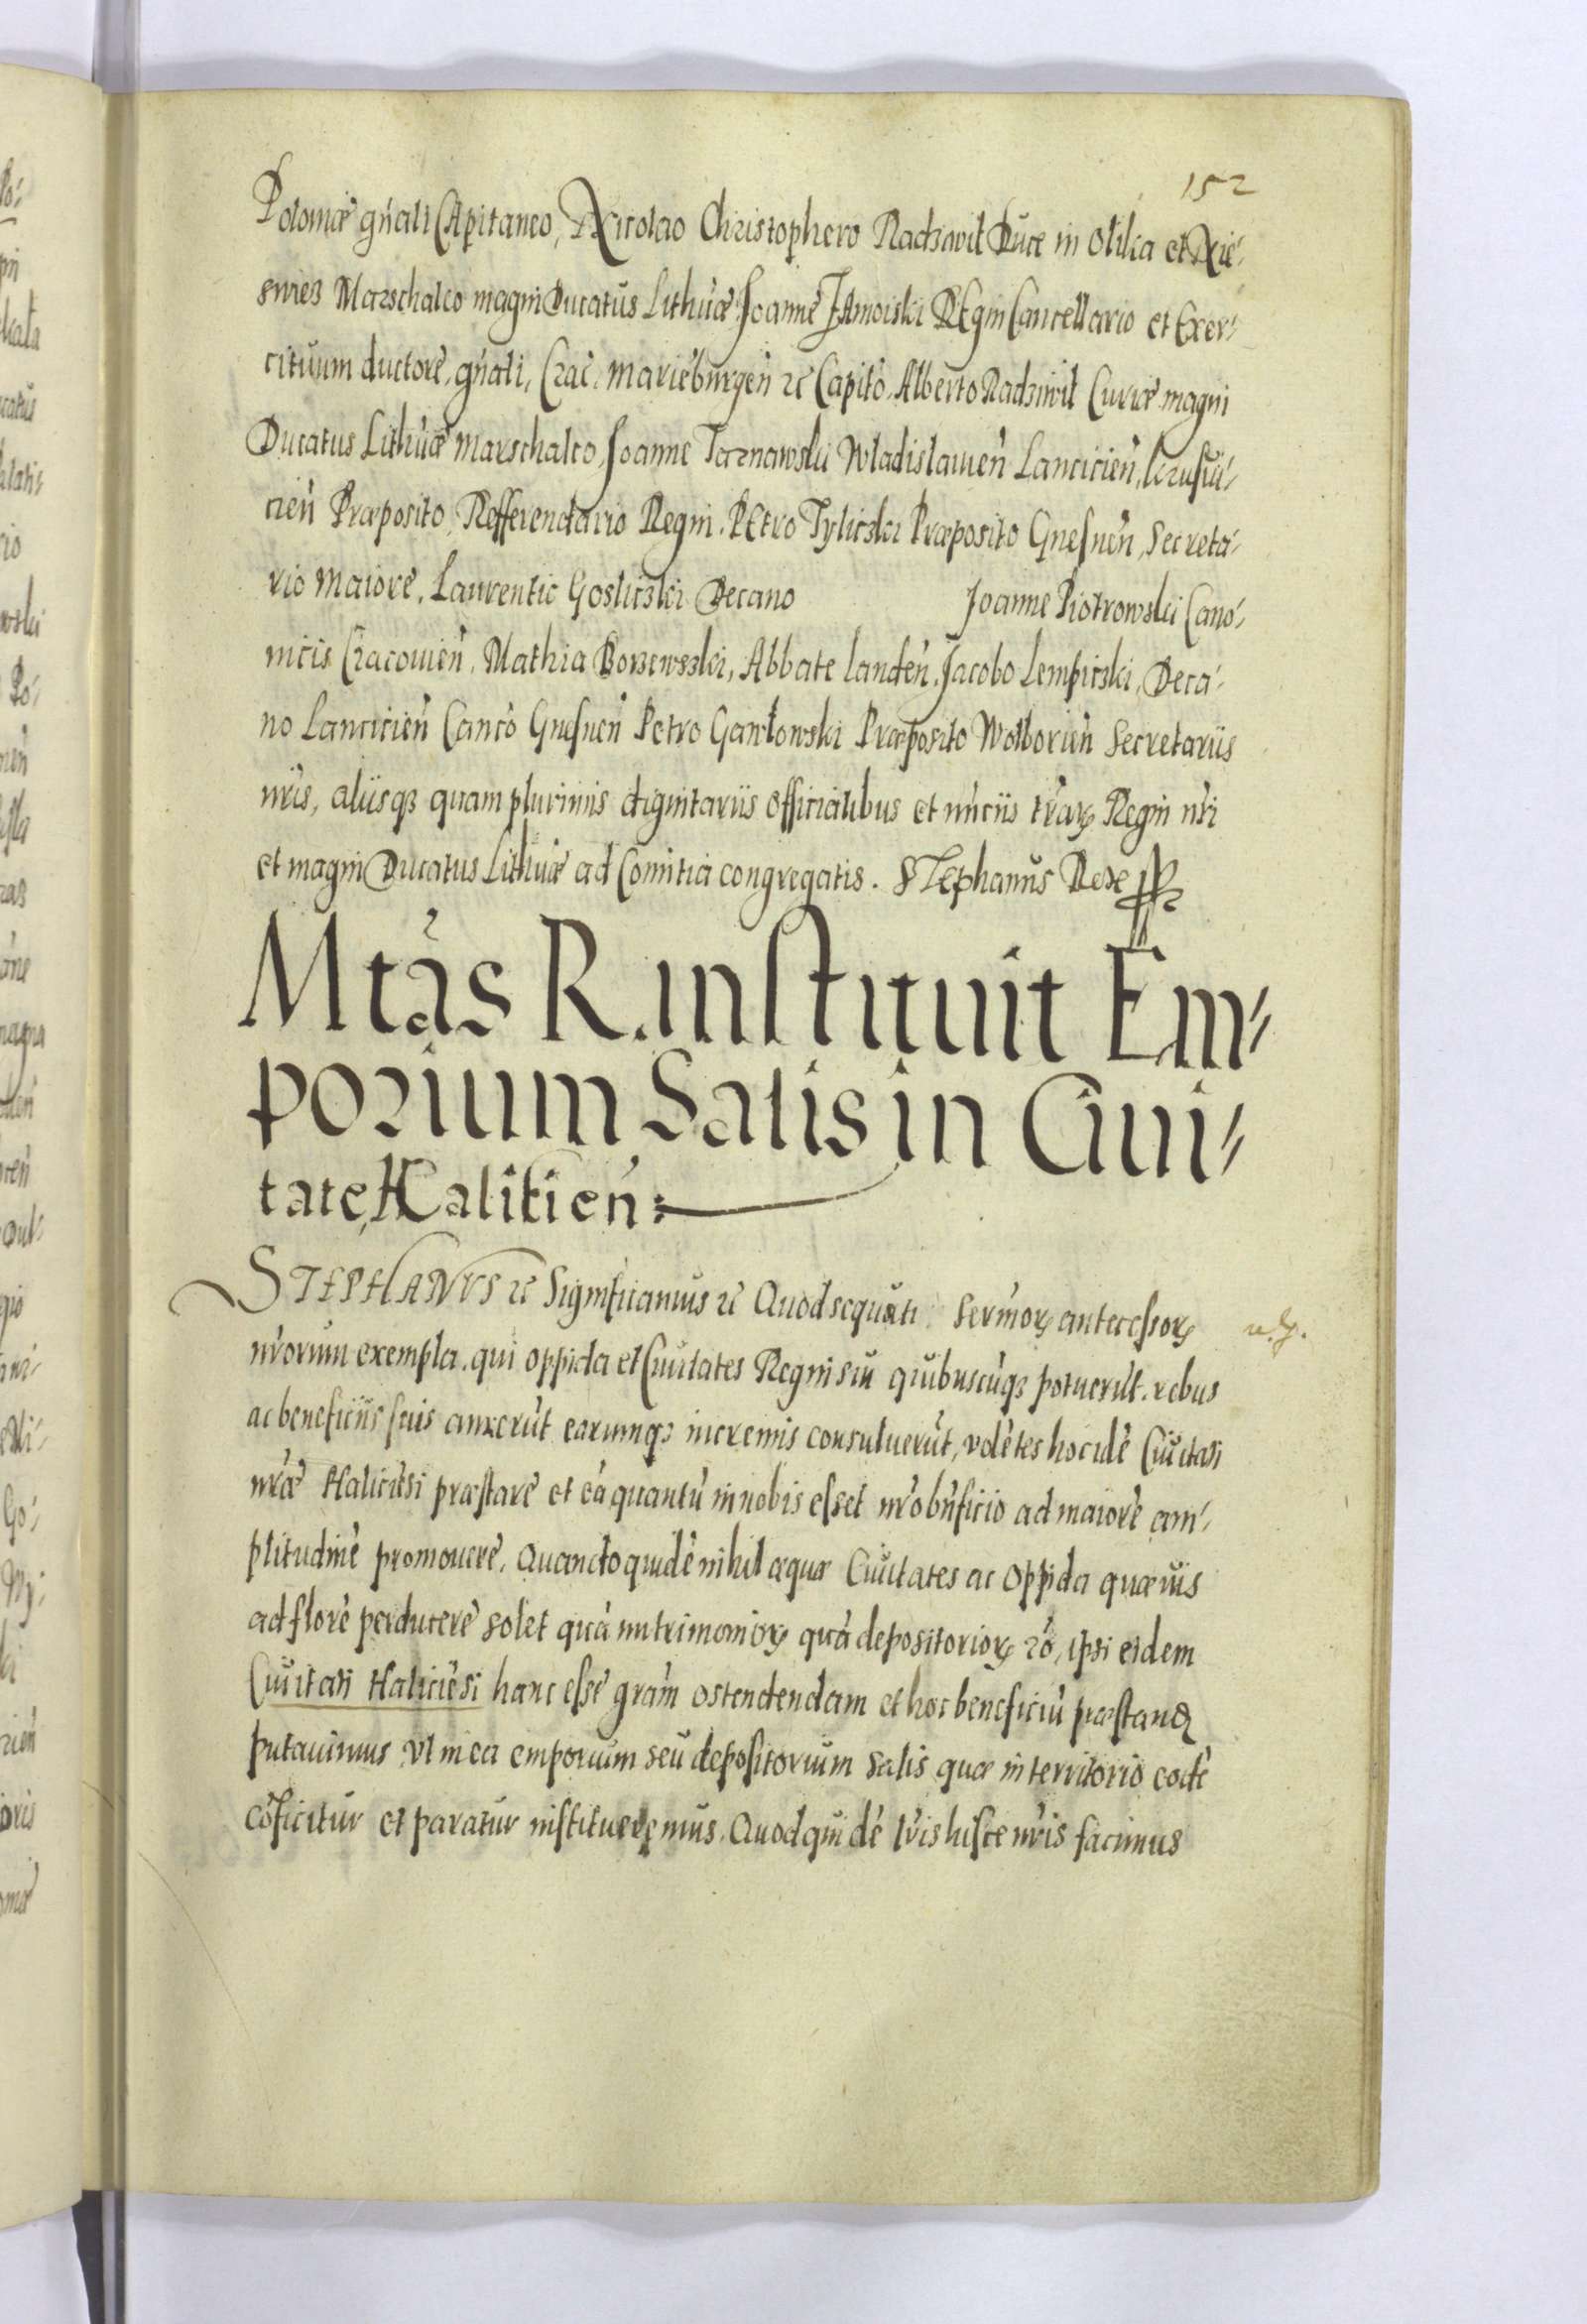 152
Poloniæ gn̄ali CApitaneo, Nicolao Christophero Radziwil Duce in Olika et Nie-
swiez Marschalco magni Ducatus Lithuæ. Joanne ZAmoiski REgni Cancellario et Exer-
cituum ductore gn̄ali, Crac. Marieburgen̄ etc Capito. Alberto Radziwil Curiæ magni
Ducatus Lithuæ Marschalco, Joanne Tarnawski Wladislauien̄ Lancicien̄, Crusui-
cien̄ Præposito, Refferendario Regni. PEtro Tyliczki Præposito Gnesnen̄, Secreta-
rio Maiore. Laurentio Gosliczki Decano Joanne Piotrowski Cano-
nicis Cracouien̄. Mathia Borzewszki, Abbate Landen̄. Jacobo Lempiczki, Deca-
no Lancicien̄ Canco Gnesnen̄ Petro Gawłowski Præposito Wolborien̄ Secretariis
nr̄is, aliisqꝫ quam plurimis dignitariis officialibus et nūciis tr̄aꝝ Regni nr̄i
et magni Ducatus Lithuæ ad Comitia congregatis. STephanus Rex
Mtas R. instituit Em-
porium Salis in Ciui-
tate Halicien̄:
STEPHANVS etc Significamus etc Quod sequuti Sermoꝝ antecessoꝝ
nr̄orum exempla. qui oppida et Ciuitates Regni sui quibuscūqꝫ potuerūt. rebus
ac beneficiis suis auxerūt earumqꝫ incremis consuluerūt, volētes hoc idē Ciuitati
nr̄æ Haliciēsi præstare et eā quantū in nobis esset nr̄o bn̄ficio ad maiorē am-
plitudinē promouere. Quandoquidē nihil æquæ Ciuitates ac oppida quæuis
ad florē perducere solet quā nutrimonioꝝ quā depositorioꝝ rō, ipsi eidem
Ciuitati Haliciēsi hanc esse gram̄ ostendendam et hoc beneficiū præstand
putauimus vt in ea emporium seu depositorium salis quæ in territorio eodē
cōficitur et paratur institueremus. Quod quidē lr̄is hisce nr̄is facimus